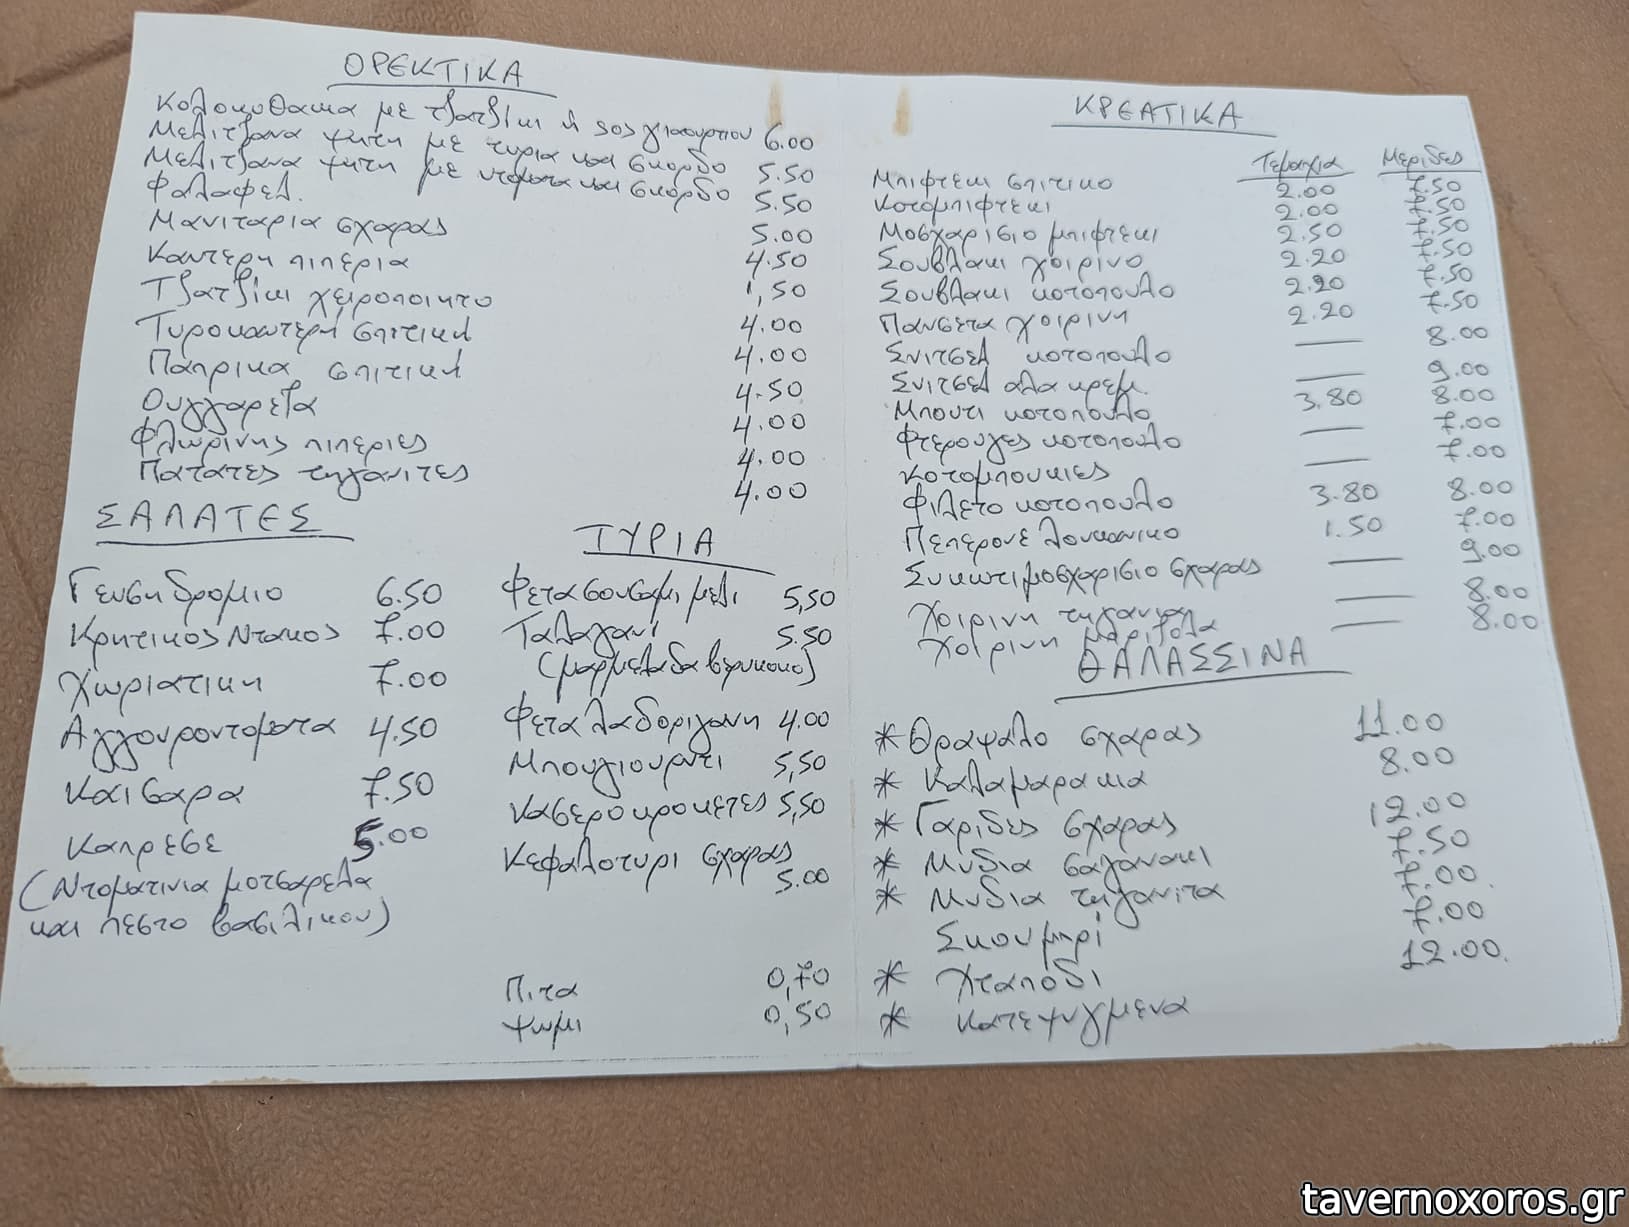 ΟΡΕΚΤΙΚΑ
Κολοκυθακια με τζατζικι ή sos γιαουρτιου 6.00
Μελιτζανα ψητη με τυρια και σκορδο 5.50
Μελιτζανα ψητη με ντοματα και σκορδο 5.50
Φαλαφελ. 5.00
Μανιταρια σχαρας 4.50
Καυτερη πιπερια 1,50
Τζατζικι χειροποιητο 4.00
Τυροκαυτερη σπιτικη 4.00
Παπρικα σπιτικη 4.50
Ουγγαρεζα 4.00
Φλωρινης πιπεριες 4.00
Πατατες τηγανιτες 4.00
ΣΑΛΑΤΕΣ
Γευσηδρομιο 6.50
Κρητικος Ντακος 7.00
Χωριατικη 7.00
Αγγουροντοματα 4.50
Καισαρα 7.50
Καπρεσε 5.00
(Ντοματινια μοτσαρελα
και πεστο βασιλικου)
ΤΥΡΙΑ
Φετα σουσαμι μελι 5,50
Ταλαγανι 5.50
(μαρμελαδα βερυκοκο)
Φετα λαδοριγανη 4.00
Μπουγιουρντι 5,50
Κασεροκροκετες 5,50
Κεφαλοτυρι σχαρας 5.00
Πιτα 0,70
Ψωμι 0,50
ΚΡΕΑΤΙΚΑ
Τεμαχια Μεριδες
Μπιφτεκι σπιτικο 2.00 7.50
Κοτομπιφτεκι 2.00 7.50
Μοσχαρισιο μπιφτεκι 2.50 7.50
Σουβλακι χοιρινο 2.20 7.50
Σουβλακι κοτοπουλο 2.20 7.50
Πανσετα χοιρινη 2.20 7.50
Σνιτσελ κοτοπουλο — 8.00
Σνιτσελ αλα κρεμ. — 9.00
Μπουτι κοτοπουλο 3.80 8.00
Φτερουγες κοτοπουλο — 7.00
Κοτομπουκιες — 7.00
Φιλετο κοτοπουλο 3.80 8.00
Πεπερονε λουκανικο 1.50 7.00
Συκωτι μοσχαρισιο σχαρας — 9.00
Χοιρινη τηγανια — 8.00
Χοιρινη μπριζολα — 8.00
ΘΑΛΑΣΣΙΝΑ
* Θραψαλο σχαρας 11.00
* Καλαμαρακια 8.00
* Γαριδες σχαρας 12.00
* Μυδια σαγανακι 7.50
* Μυδια τηγανιτα 7.00
Σκουμπρί 7.00
* Χταπόδι 12.00
* Κατεψυγμενα
tavernoxoros.gr